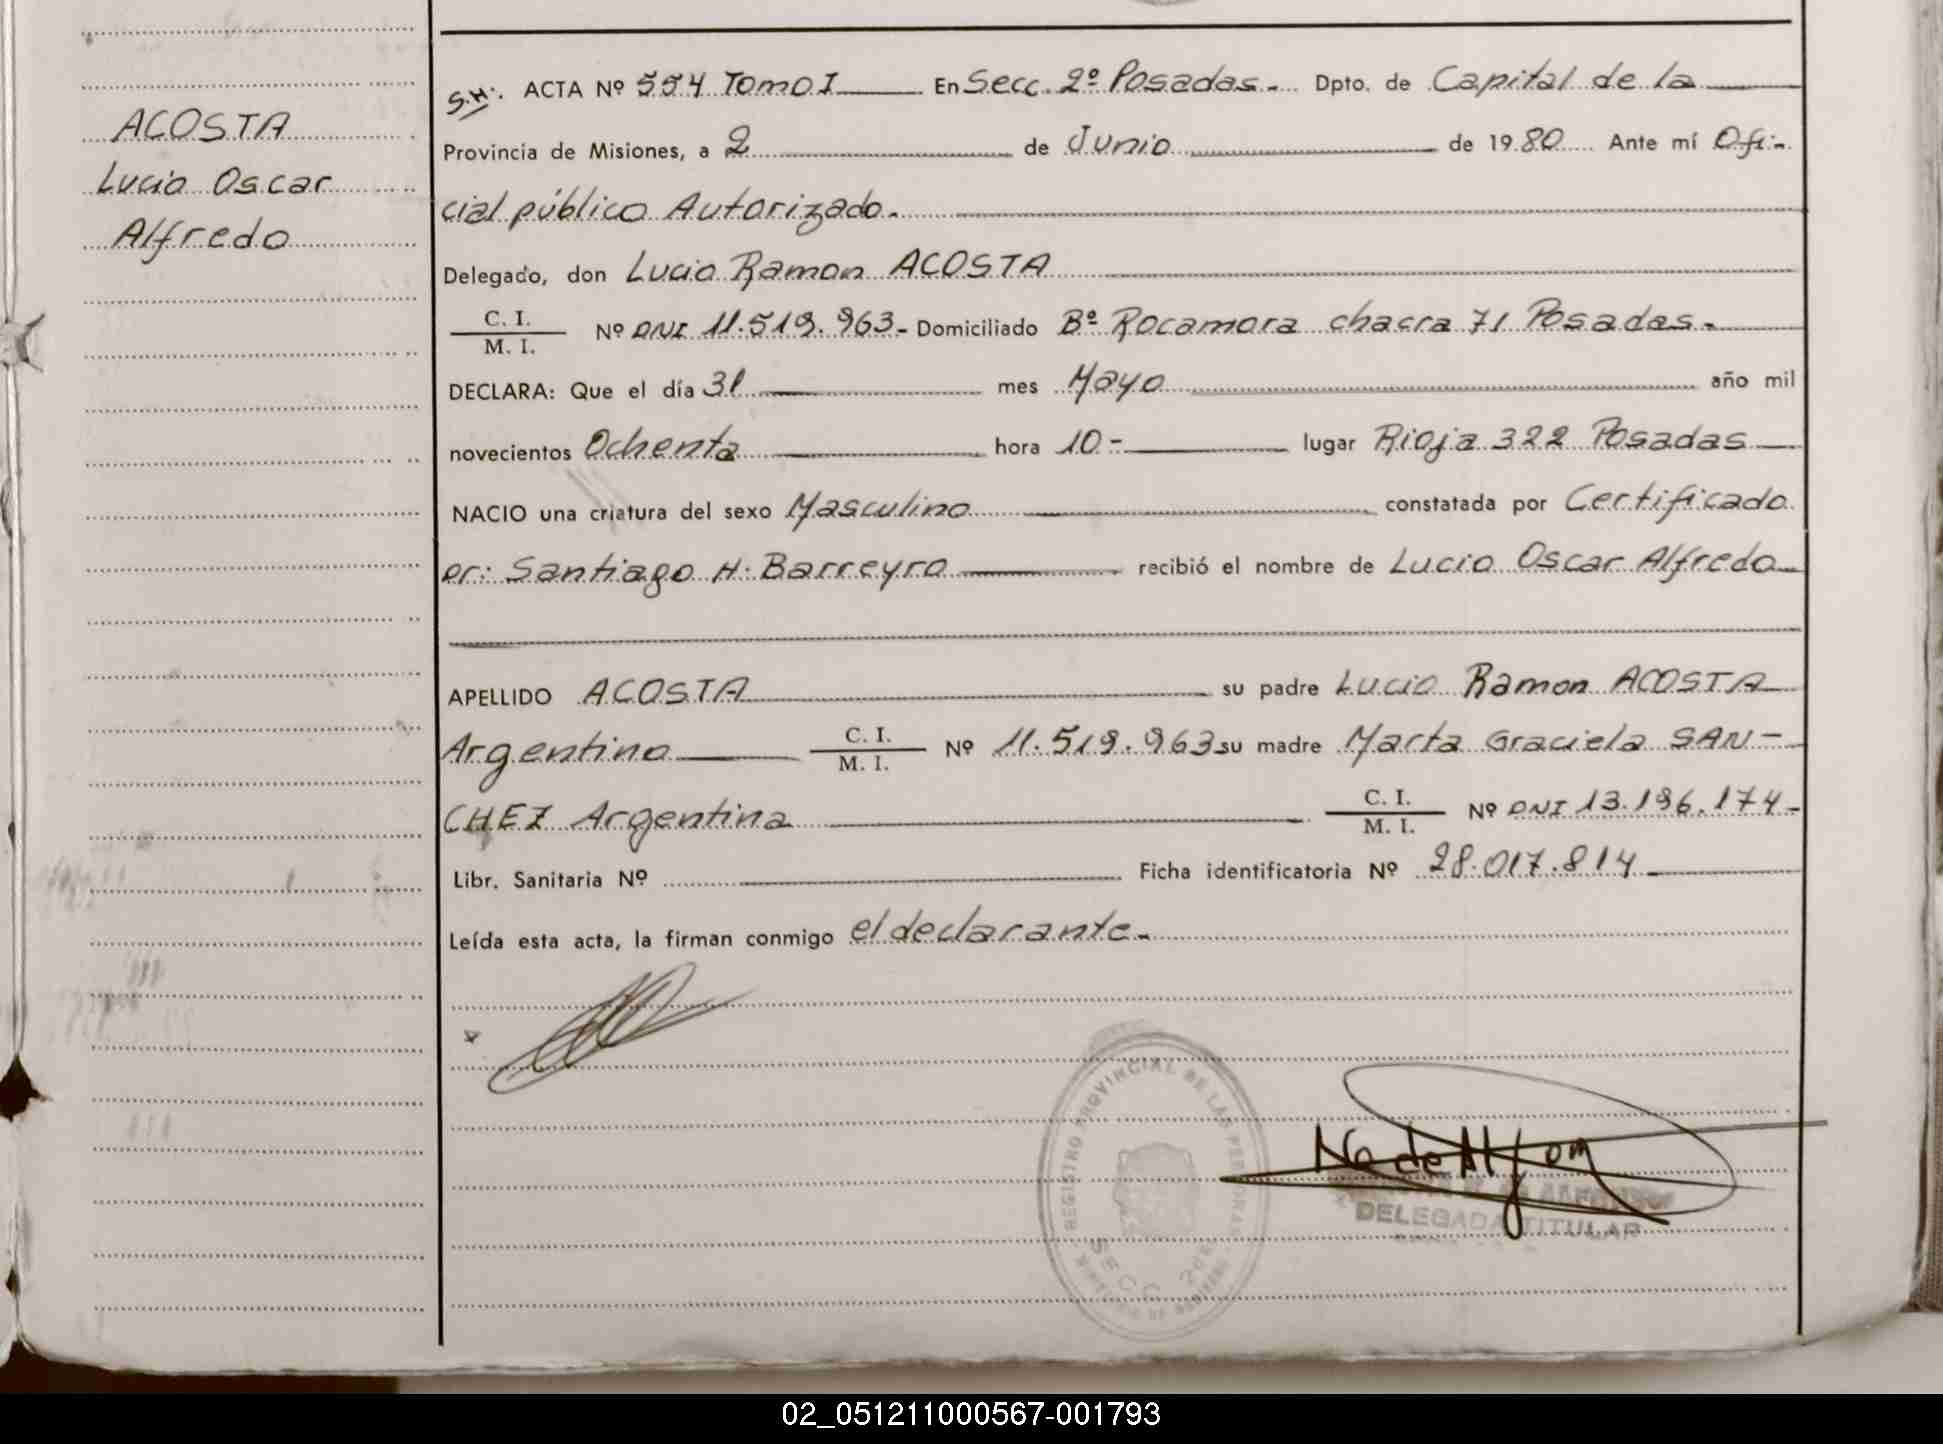 ACOSTA
Lucio Oscar
Alfredo
S.H:. ACTA Nº 554 Tomo I En Secc. 2º Posadas.- Dpto. de Capital de la
Provincia de Misiones, a 2 de Junio de 1980 Ante mí Ofi-
cial público Autorizado.
Delegado, don Lucio Ramon ACOSTA
C. I.
M. I.
Nº DNI 11.519.963.- Domiciliado Bº Rocamora chacra 71 Posadas.-
DECLARA: Que el día 31 mes Mayo año mil
novecientos Ochenta hora 10.- lugar Rioja 322 Posadas
NACIO una criatura del sexo Masculino constatada por Certificado
Dr: Santiago H. Barreyro recibió el nombre de Lucio Oscar Alfredo
APELLIDO ACOSTA su padre Lucio Ramon ACOSTA
Argentino C. I.
M. I.
Nº 11.519.963 su madre Marta Graciela SAN-
CHEZ Argentina C. I.
M. I.
Nº DNI 13.196.174-
Libr. Sanitaria Nº Ficha identificatoria Nº 28.017.814
Leída esta acta, la firman conmigo el declarante.-
REGISTRO PROVINCIAL DE LAS PERSONAS
SECC 2da
DELEGADA TITULAR
02_051211000567-001793